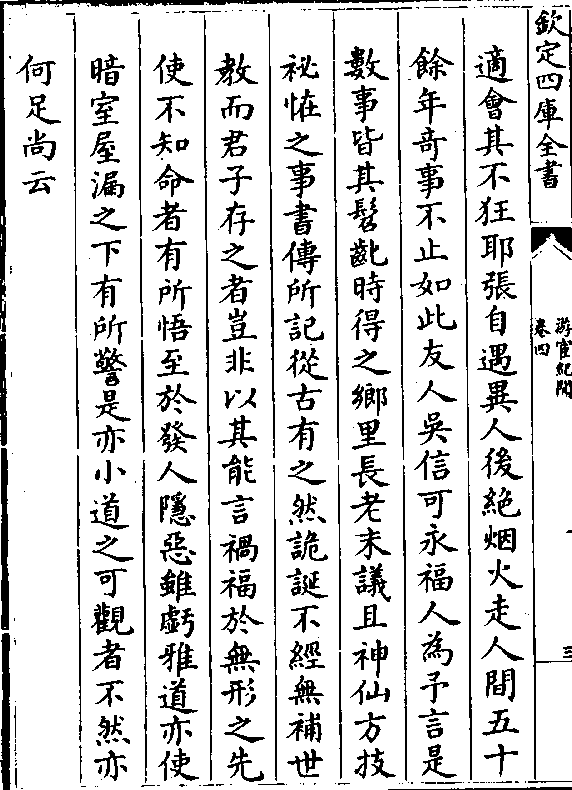 欽定四庫全書
游宦紀聞
卷四
三
適會其不狂耶張自遇異人後絶烟火走人間五十
餘年竒事不止如此友人吳信可永福人為予言是
數事皆其髫齔時得之鄉里長老末議且神仙方技
祕怪之事書傳所記從古有之然詭誕不經無補世
教而君子存之者豈非以其能言禍福於無形之先
使不知命者有所悟至於發人隱惡雖虧雅道亦使
暗室屋漏之下有所警是亦小道之可觀者不然亦
何足尚云